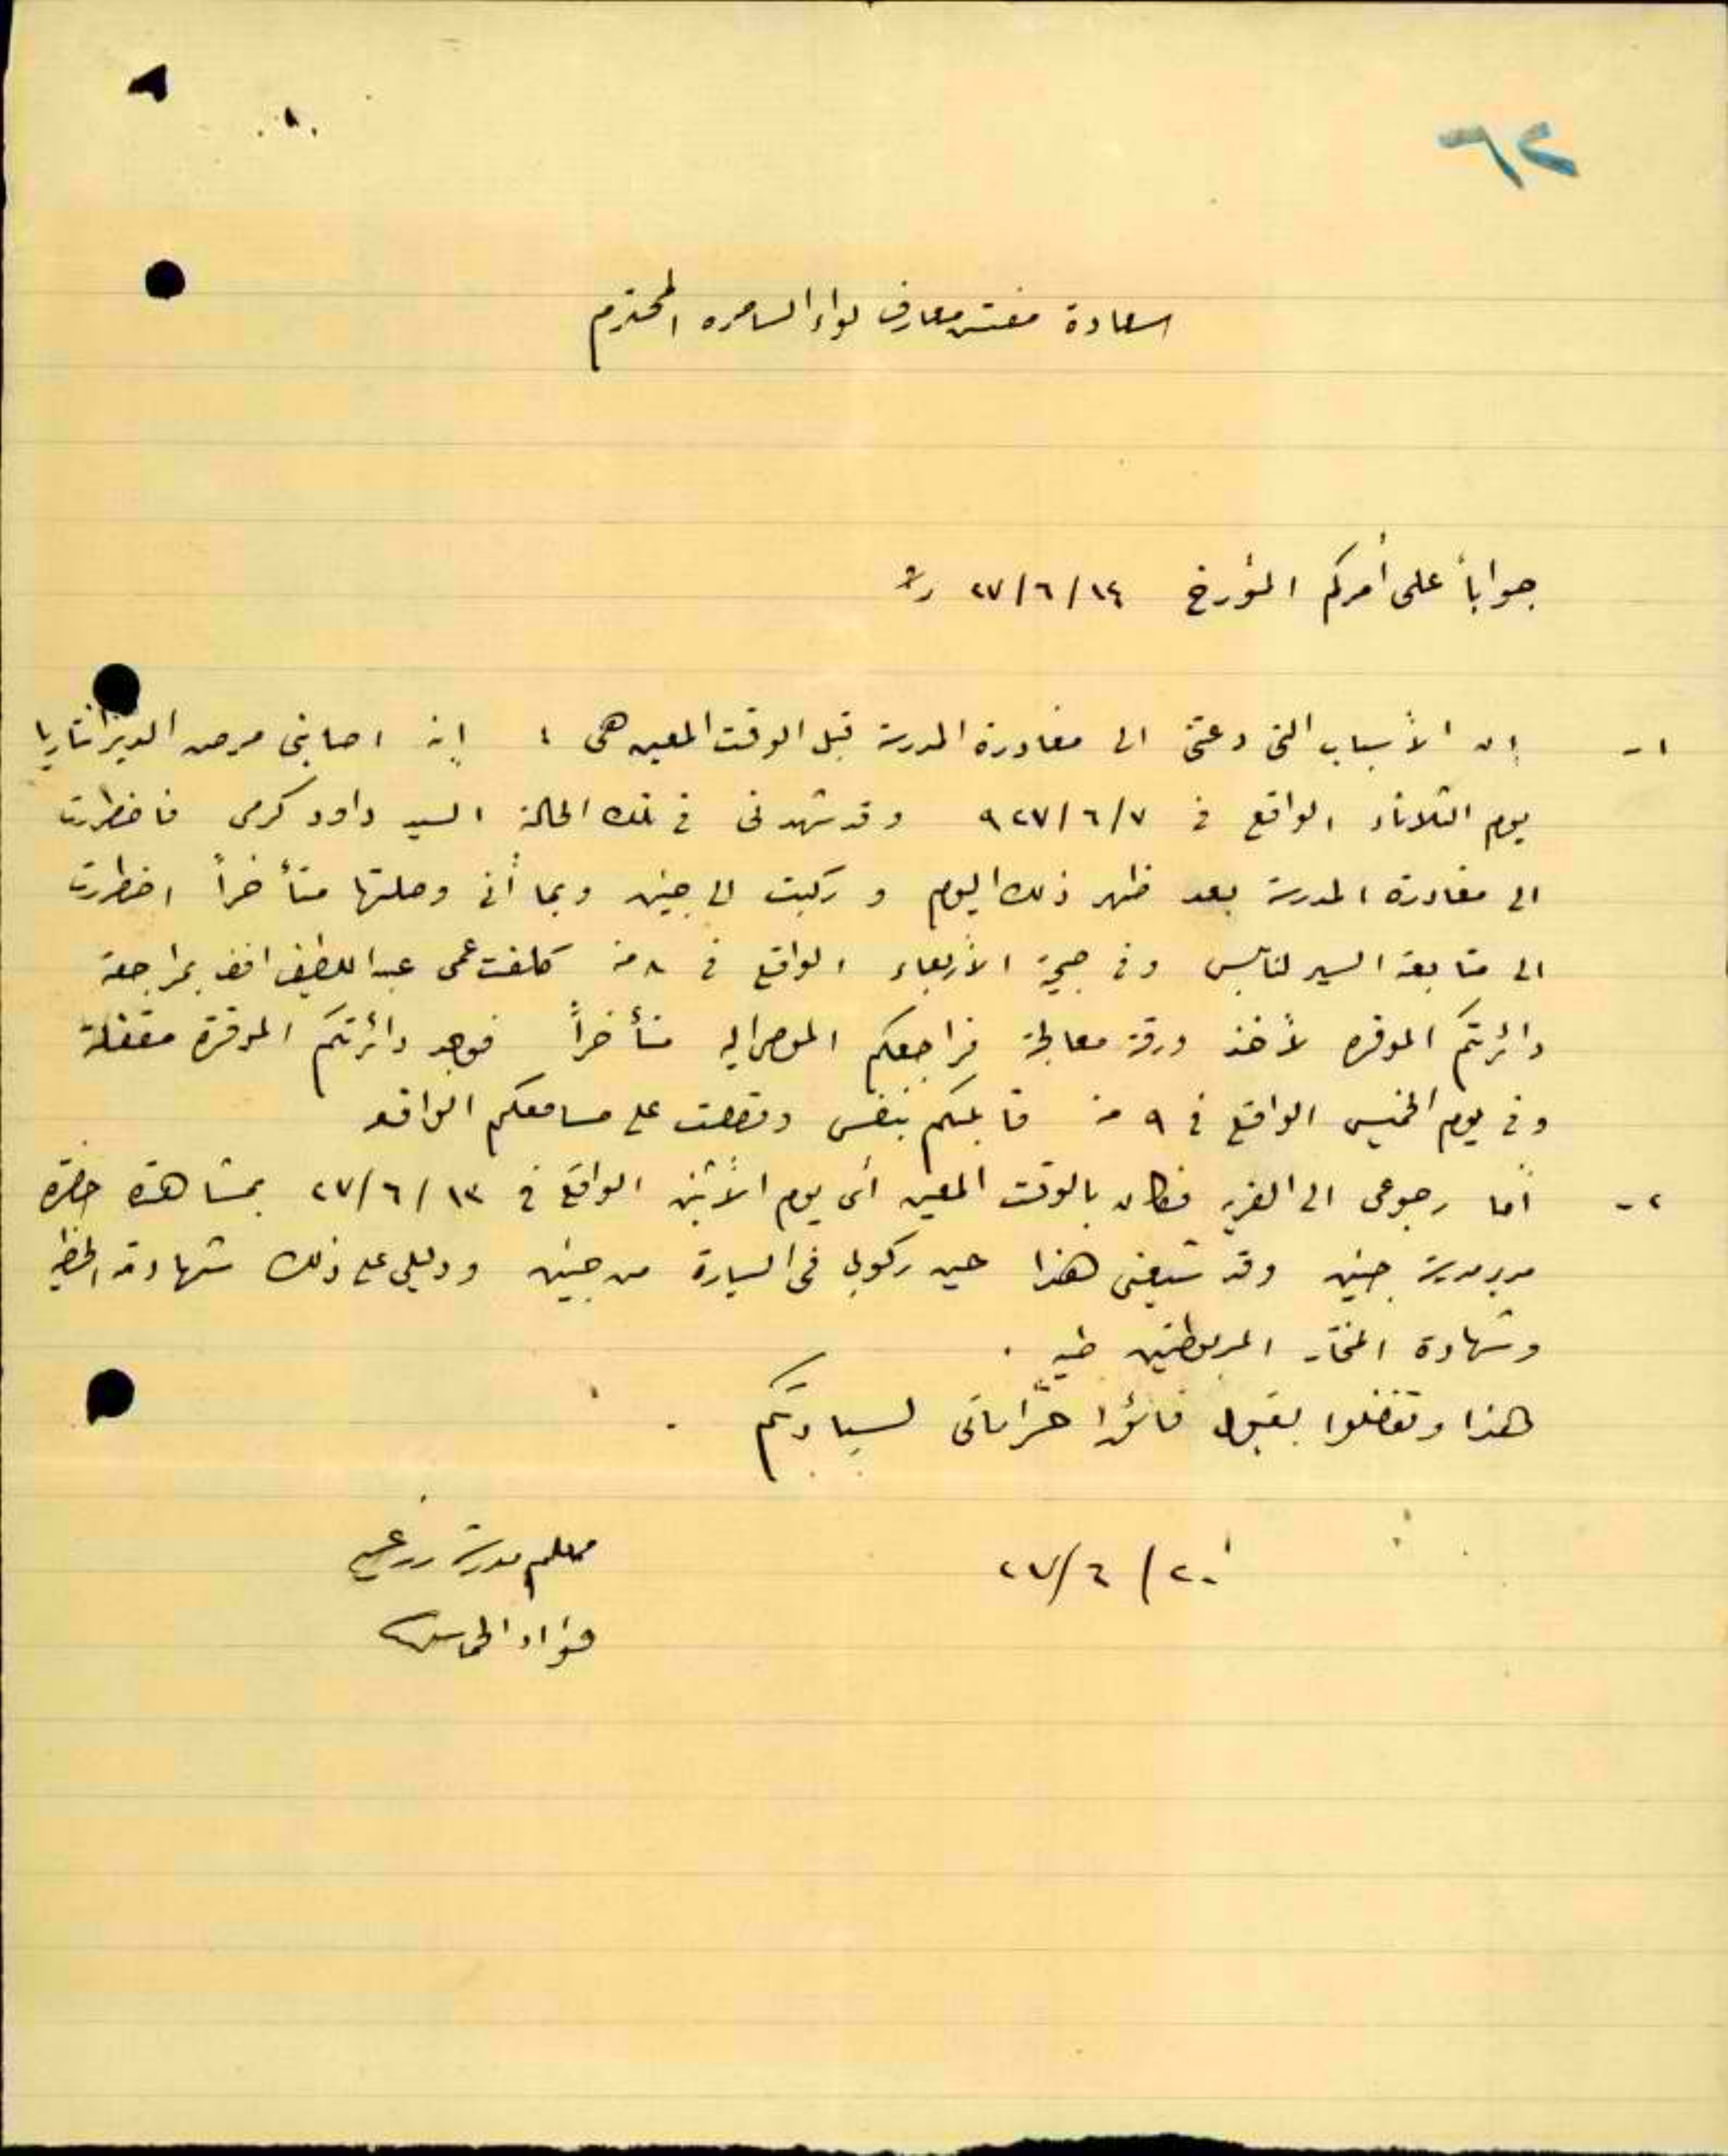 ٦٢
سعادة مفتش معارف لواء السامره المحترم
جواباً على أمركم المؤرخ ١٤/٦/٢٧
١- إن الأسباب التي دعتني الى مغادرة المدرسة قبل الوقت المعين هي : إنه اصابني مرض الديزانتاريا
يوم الثلاثاء الواقع في ٧/٦/٩٢٧ وقد شهدني في تلك الحالة السيد داود كرمي فاضطررت
الى مغادرة المدرسة بعد ظهر ذلك اليوم و ركبت الى جنين وبما أني وصلتها متأخراً اضطررت
الى متابعة السير لنابلس وفي صبيحة الأربعاء الواقع في ٨ منه كلفت عمي عبد اللطيف افندي بمراجعة
دائرتكم الموقره لأخذ ورقة معالجة فراجعكم الموصى اليه متأخراً فوجد دائرتكم الموقرة مقفلة
وفي يوم الخميس الواقع في ٩ منه قابلتكم بنفسي وقصصت على مسامعكم الواقع
٢- أما رجوعي الى القريه فكان بالوقت المعين أي يوم الأثنين الواقع في ١٣/٦/٢٧ بمشاهدة حضرة
مدير مدرسة جنين وقد شيعني هذا حين ركوبي في السيارة من جنين ودليلي على ذلك شهادته الخطيه
وشهادة المختار المربوطتين طيه .
هذا وتفضلوا بقبول فائق احتراماتي لسيادتكم .
٢٠/٦/٢٧
معلم مدرسة زرعين
فؤاد